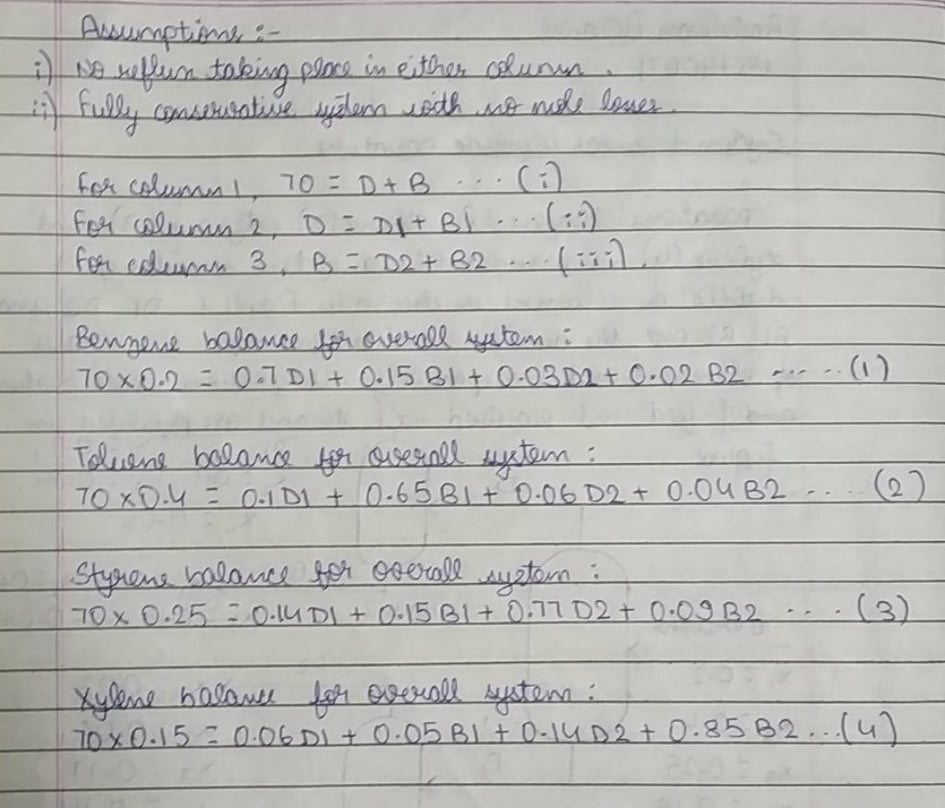 Assumptions :-
i) No reflux taking place in either column.
ii) Fully conservative system with no mole losses.
For column 1, 70 = D + B ... (i)
For column 2, D = D1 + B1 ... (ii)
For column 3, B = D2 + B2 ... (iii).
Benzene balance for overall system :
70 × 0.2 = 0.7 D1 + 0.15 B1 + 0.03 D2 + 0.02 B2 ..... (1)
Toluene balance for overall system :
70 × 0.4 = 0.1 D1 + 0.65 B1 + 0.06 D2 + 0.04 B2 .... (2)
Styrene balance for overall system :
70 × 0.25 = 0.14 D1 + 0.15 B1 + 0.77 D2 + 0.09 B2 ... (3)
Xylene balance for overall system :
70 × 0.15 = 0.06 D1 + 0.05 B1 + 0.14 D2 + 0.85 B2 ... (4)